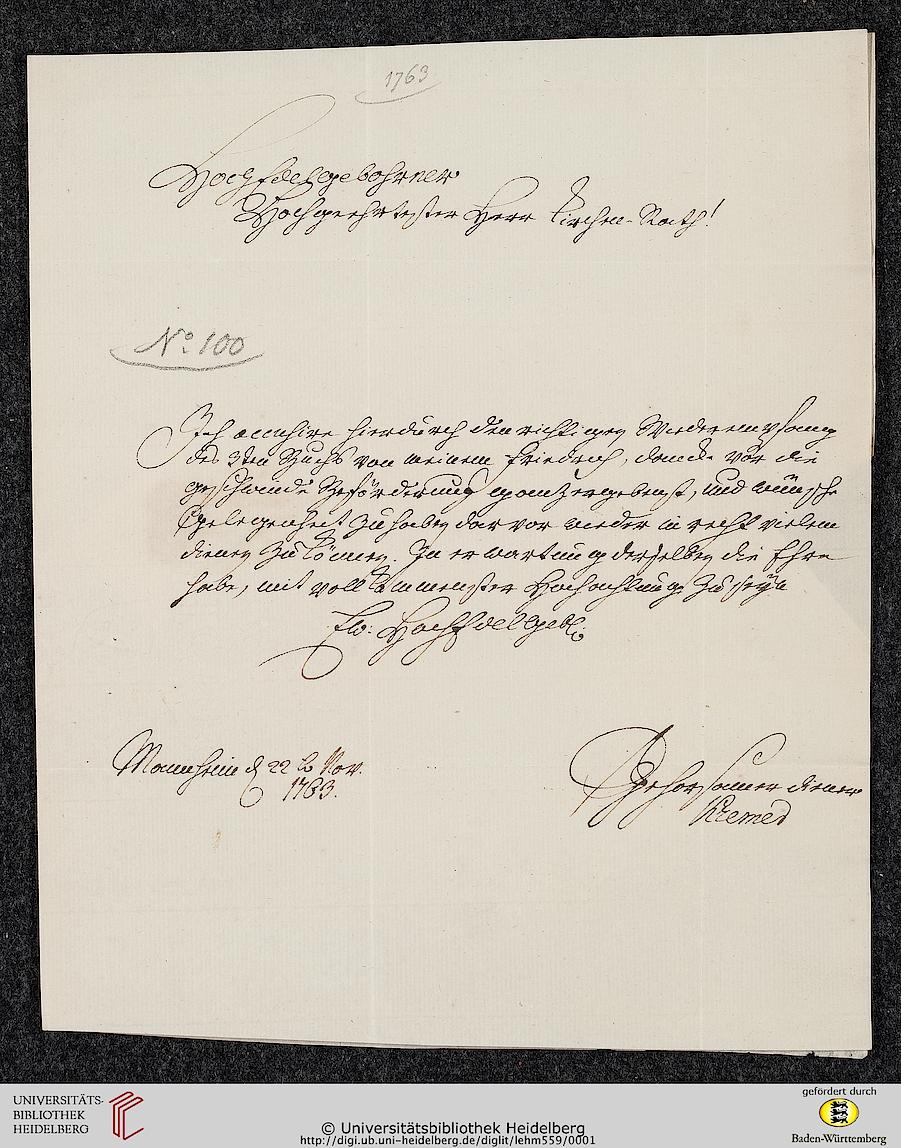 1763
HochEdelgebohrner
Hochgeehrtester Herr Kirchen-Rath!
No. 100
Ich hierdurch den richtigen Wiederempfang
des 3ten Buchs von meinem Friedrich, dancke vor die
geschwinde Beförderung gantz ergebenst, und wünsche
Gelegenheit zu haben darvor wieder in recht vielem
dienen zu können. In erwartung derselben die Ehre
habe, mit vollkommenster Hochachtung zu seyn
Ew: HochEdelgeb:
Mannheim d 22 Nov.
1763.
gehorsamer diener
Kremer
UNIVERSITÄTS-
BIBLIOTHEK
HEIDELBERG
© Universitätsbibliothek Heidelberg
http://digi.ub.uni-heidelberg.de/diglit/lehm559/0001
gefördert durch
Baden-Württemberg